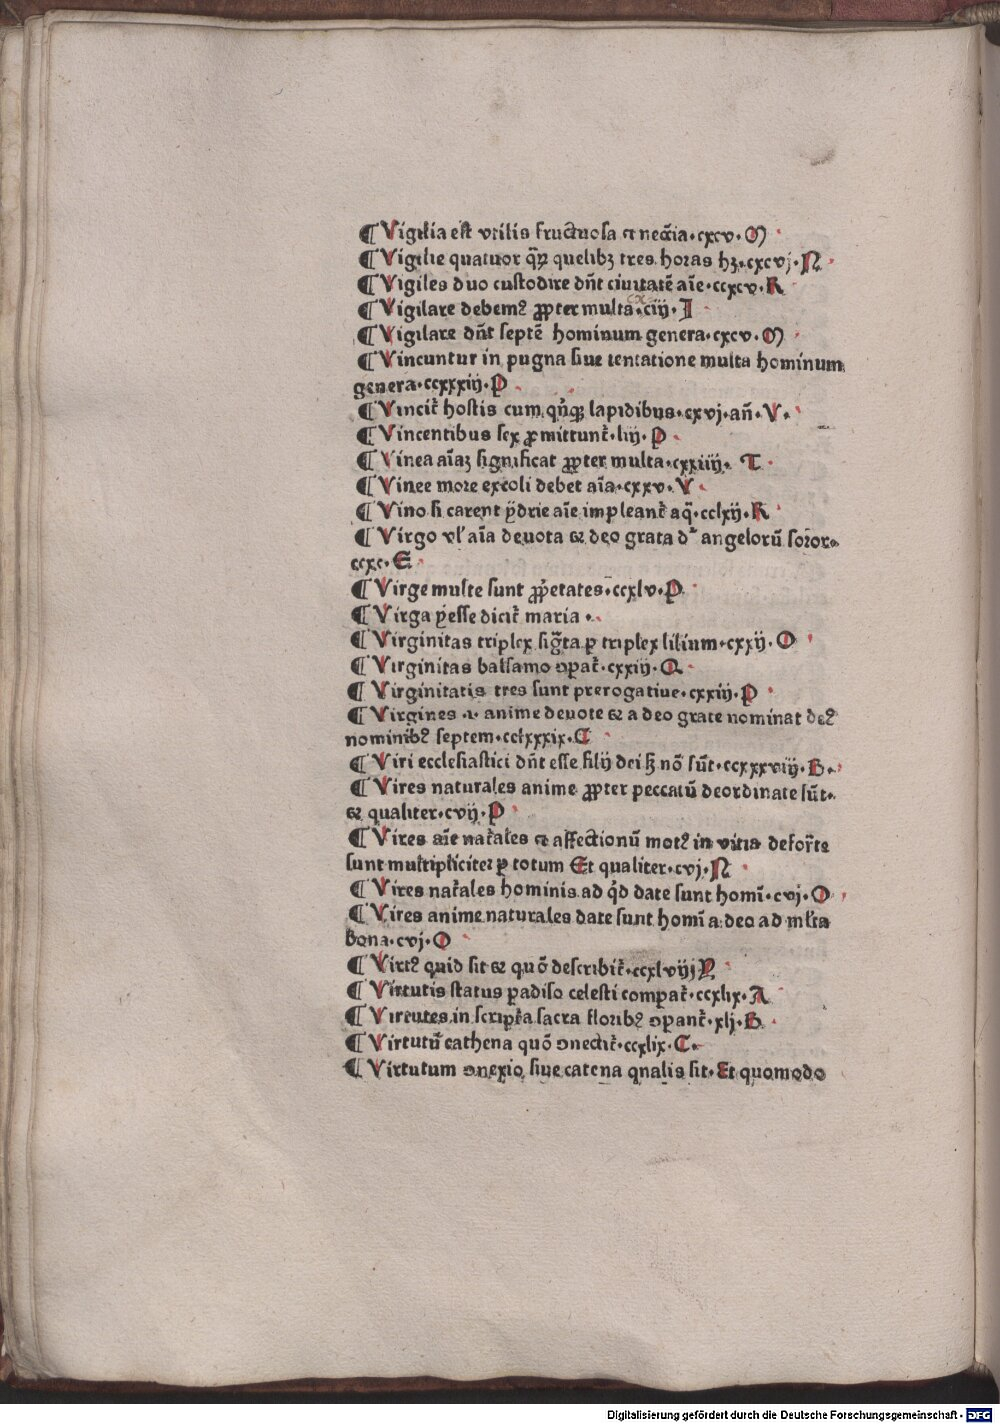 ¶ Vigilia est vtilis fructuosa ⁊ necͣia·cxcv·M
¶ Vigilie quatuor qͣꝝ quelibꝫ tres horas hꝫ·cxcvj·N
¶ Vigiles duo custodire dn̄t ciuitatē aīe·ccxcv·R
¶ Vigilare debemꝰ ꝓpter multa·ciij·I
¶ Vigilare dn̄t septē hominum genera·cxcv·M
¶ Vincuntur in pugna siue tentatione multa hominum
genera·ccxxxiij·P
¶ Vincit᷑ hostis cum qn̄qꝫ lapidibus·cxvj·an̄·V·
¶ Vincentibus sex ꝓmittunt᷑·liij·P
¶ Vinea aīaꝫ significat ꝓpter multa·cxxiiij· T
¶ Vinee more excoli debet aīa·cxxv·V
¶ Vino si carent ẏdrie aīe impleant᷑ aq̄·cclxij·R
¶ Virgo vl̓ aīa deuota ⁊ deo grata dꝛ angelorū soror·
ccxc·E
¶ Virge multe sunt ꝓp̄etates·ccxlv·P
¶ Virga p̄esse dicit᷑ maria ·
¶ Virginitas triplex sigͣta ꝑ triplex lilium·cxxij·O
¶ Virginitas balsamo ꝯpat᷑·cxxiij·Q
¶ Virginitatis tres sunt prerogatiue·cxxiij·P
¶ Virgines ·i· anime deuote ⁊ a deo grate nominat deꝰ
nominibꝰ septem·cclxxxix·C
¶ Viri ecclesiastici dn̄t esse filij dei sꝫ nō sūt·ccxxxviij·B·
¶ Vires naturales anime ꝓpter peccatū deordinate sūt·
⁊ qualiter·cvij·P
¶ Vires aīe nat᷑ales ⁊ affectionū motꝰ in vitia defor̄te
sunt multipliciter ꝑ totum Et qualiter·cvj·N
¶ Vires nat᷑ales hominis ad qͥd date sunt homī·cvj·O
¶ Vires anime naturales date sunt homī a deo ad ml̓ta
bona·cvj·O
¶ Virtꝰ quid sit ⁊ quō describit᷑·ccxlviij P
¶ Virtutis status ꝑadiso celesti comꝑat᷑·ccxlix·A
¶ Virtutes in script᷑a sacra floribꝰ ꝯpant᷑·xlj·B·
¶ Virtutū cathena quō ꝯnectit᷑·ccxlix·C·
¶ Virtutum ꝯnexio siue catena qualis sit·Et quomodo
Digitalisierung gefördert durch die Deutsche Forschungsgemeinschaft - DFG